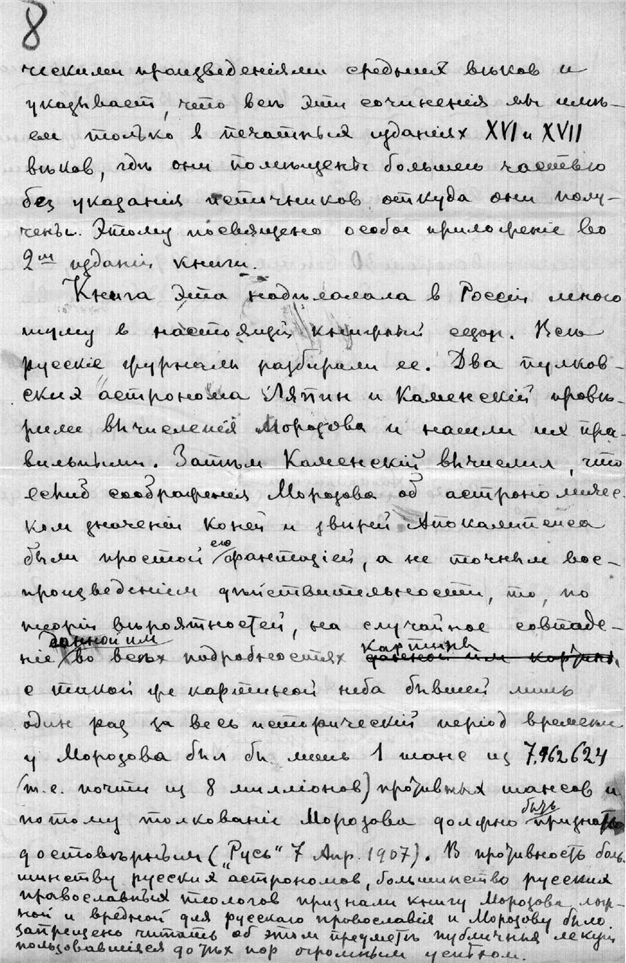 8
ческими произведеніями среднихъ вѣков и
указывает, что всѣ эти сочиненія мы имѣ-
ем только в печатных изданіях XVI и XVII
вѣков, гдѣ они помѣщены большею частью
без указанія источников откуда они полу-
чены. Этому посвящено особое приложеніе во
2ом изданіи книги.
Книга эта надѣлала в Россіи много
шуму в настоящій книжный сезон. Всѣ
русскіе журналы разбирали ее. Два пулков-
ских астронома Ляпин и Каменскій провѣ-
рили вычисленія Морозова и нашли их пра-
вильными. Затѣм Каменскій вычислил, что
если б соображенія Морозова об астрономичес-
ком значеніи Коней и звѣрей Апокалипсиса
были простой его фантазіей, а не точным вос-
произведеніем дѣйствительности, то, по
теоріи вѣроятностей, на случайное совпаде-
ніе во всѣх подробностях данной им картины
с такой же картиной неба бывшей лишь
один раз за весь историческій період времени
у Морозова был бы лишь 1 шанс из 7,962624
(т.е. почти из 8 милліонов) противных шансов и
потому толкованіе Морозова должно быть признано
достовѣрным ("Русь" 7 Апр. 1907). В противность боль-
шинству русских астрономов, большинство русских
православных теологов признали книгу Морозова
и вредной для русскаго православія и Морозову было
запрещено читать об этом предметѣ публичныя лекціи
пользовавшіяся до тѣх пор огромным успѣхом.